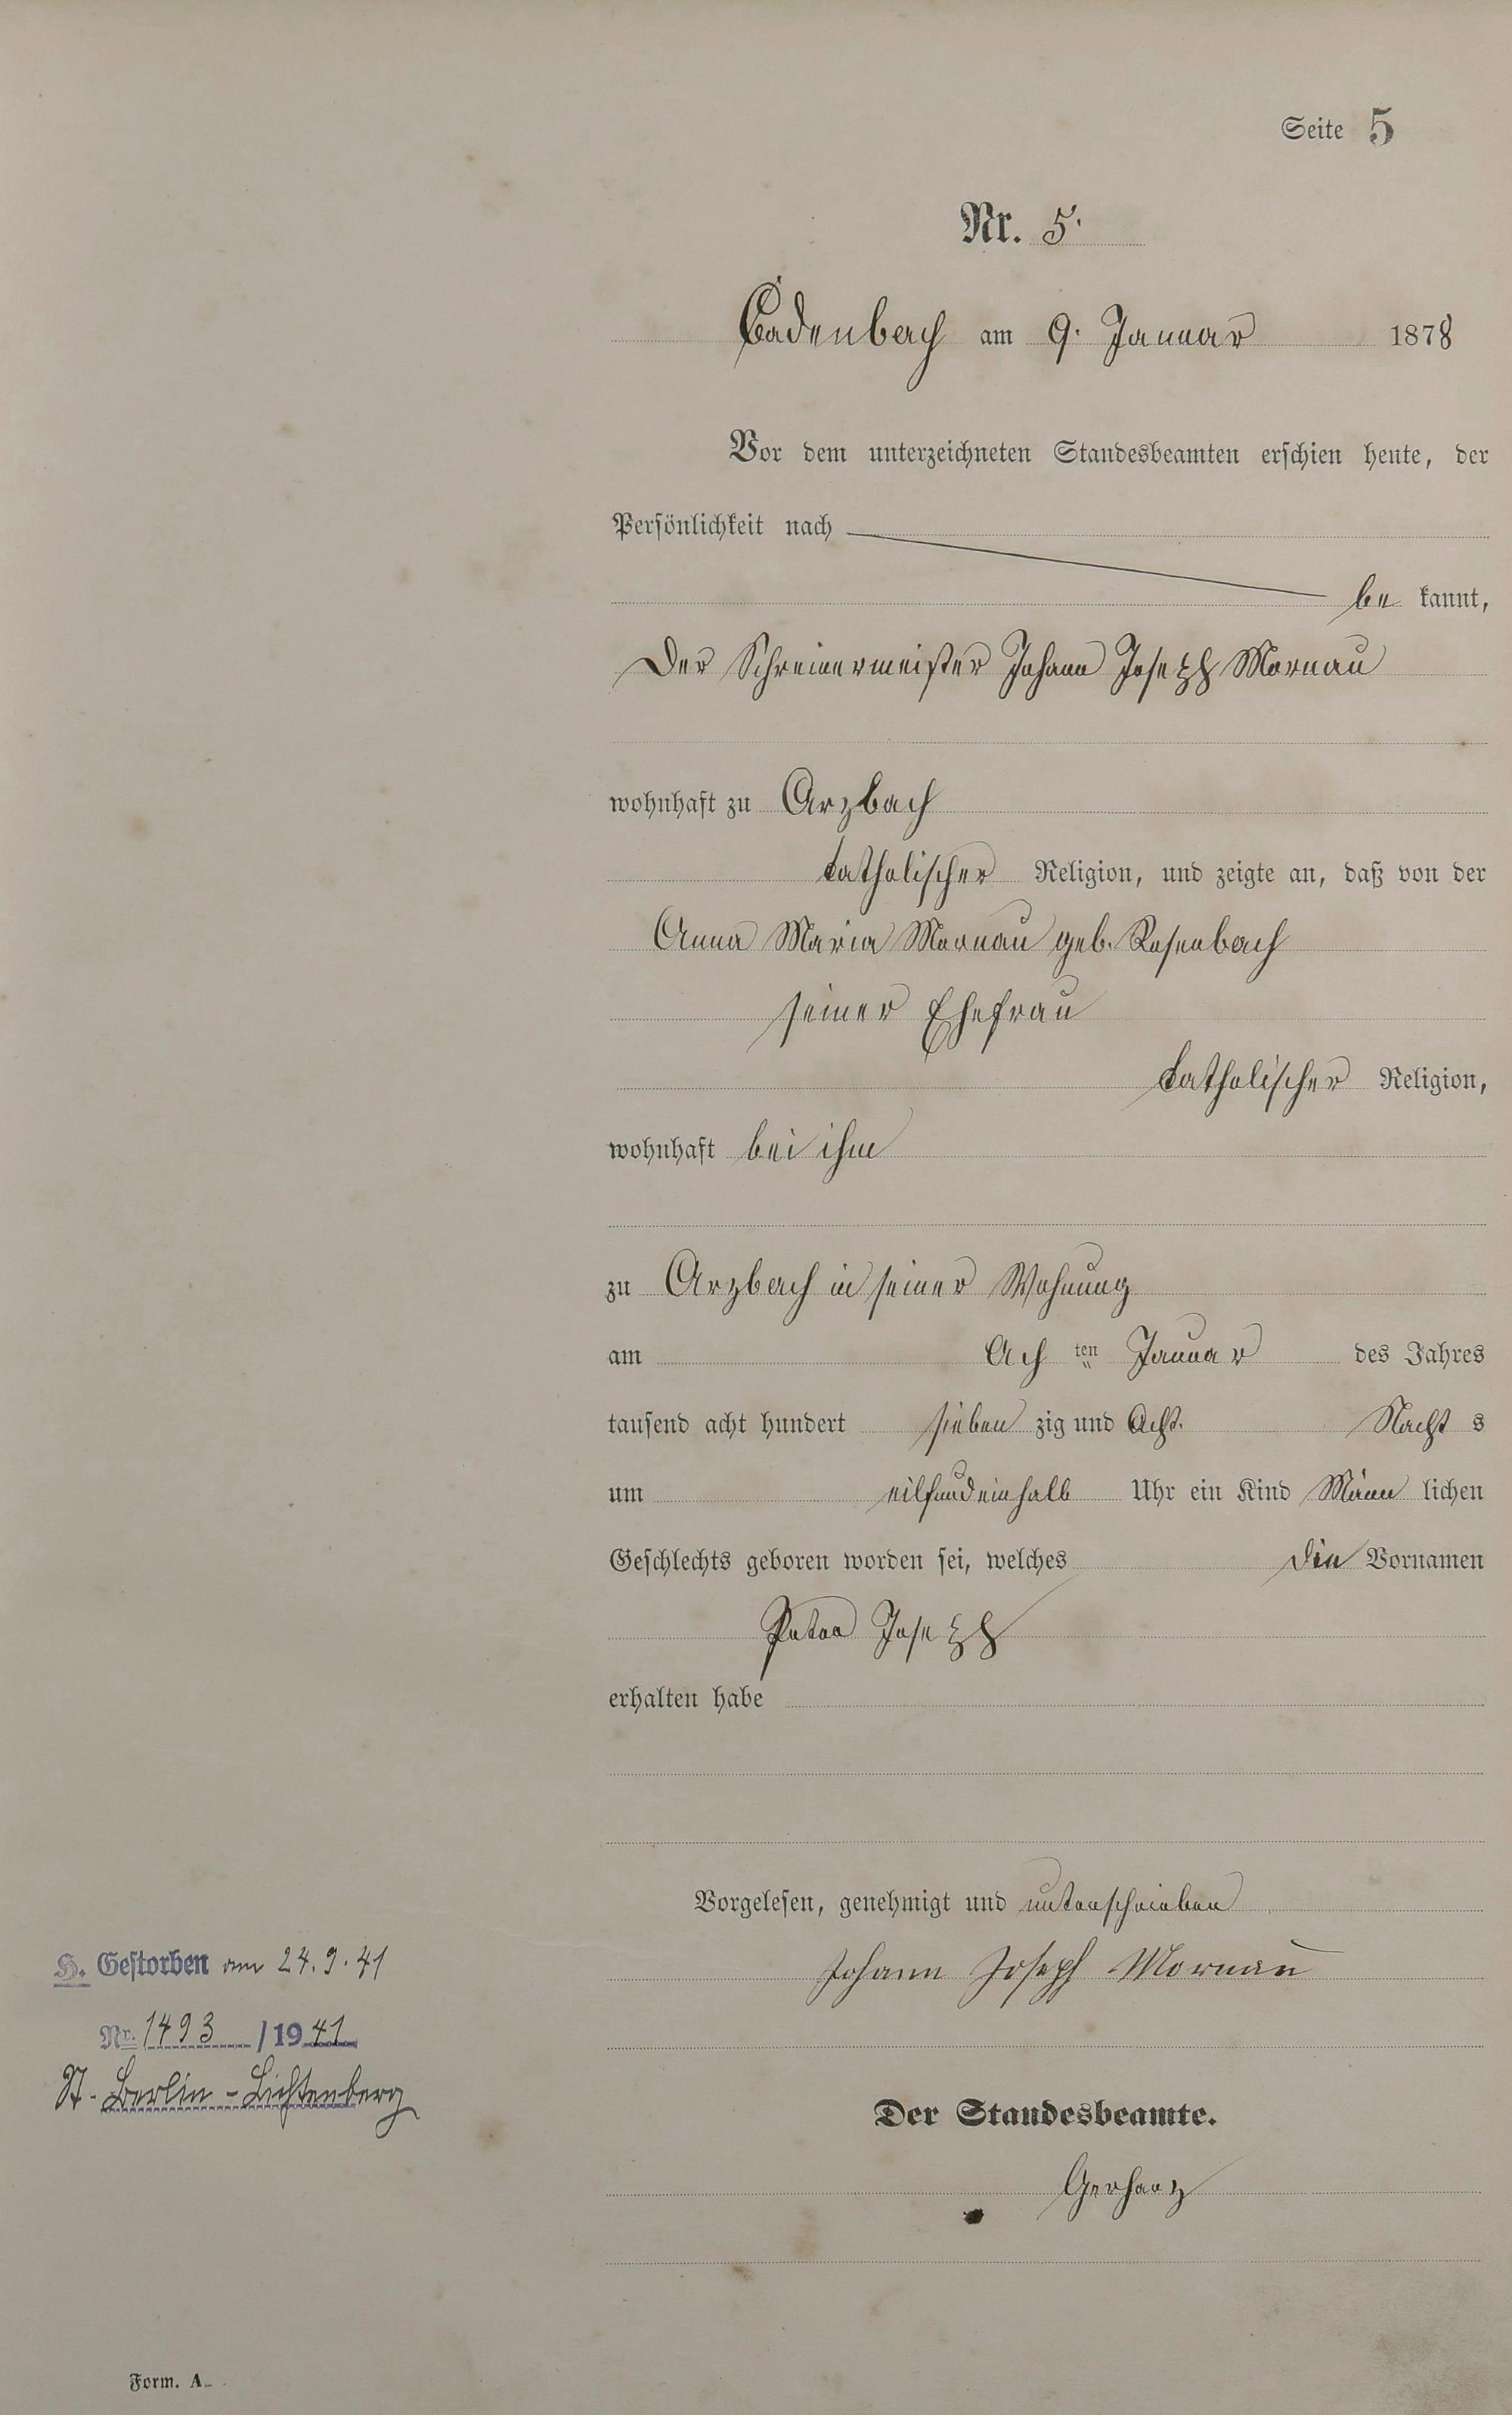 Seite 5
Nr. 5.
Cadenbach am 9. Januar 1878
Vor dem unterzeichneten Standesbeamten erschien heute, der
Persönlichkeit nach
be kannt,
Der Schreinermeister Johann Joseph Mornau
wohnhaft zu Arzbach
katholischer Religion, und zeigte an, daß von der
Anna Maria Mornau geb. Rosenbach
seiner Ehefrau
katholischer Religion,
wohnhaft bei ihm
zu Arzbach in seiner Wohnung
am Ach ten Januar des Jahres
tausend acht hundert sieben zig und Acht. Nacht s
um eilfundeinhalb Uhr ein Kind Männ lichen
Geschlechts geboren worden sei, welches die Vornamen
Peter Joseph
erhalten habe
Vorgelesen, genehmigt und unterschrieben
Johann Joseph Mornau
H. Gestorben am 24.9.41
Nr. 1493 / 1941
St. Berlin-Lichtenberg
Der Standesbeamte.
Gerharz
Form. A.